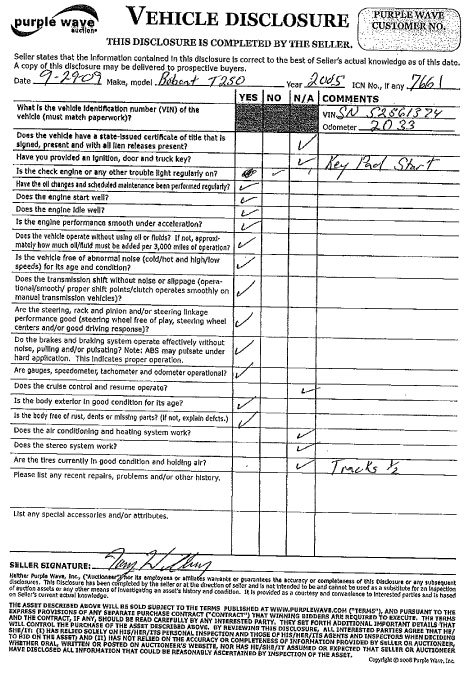 purple wave
auction
VEHICLE DISCLOSURE
PURPLE WAVE
CUSTOMER NO.
THIS DISCLOSURE IS COMPLETED BY THE SELLER.
Seller states that the information contained in this disclosure is correct to the best of Seller's actual knowledge as of this date.
A copy of this disclosure may be delivered to prospective buyers.
Date 9-29-09 Make, model Bobcat T250 Year 2005 ICN No., if any 7661
YES NO N/A COMMENTS
What is the vehicle identification number (VIN) of the
vehicle (must match paperwork)?
VIN SN 52561324
Odometer 2033
Does the vehicle have a state-issued certificate of title that is
signed, present and with all lien releases present?
Have you provided an ignition, door and truck key?
Key Pad Start
Is the check engine or any other trouble light regularly on?
Have the oil changes and scheduled maintenance been performed regularly?
Does the engine start well?
Does the engine idle well?
Is the engine performance smooth under acceleration?
Does the vehicle operate without using oil or fluids? If not, approxi-
mately how much oil/fluid must be added per 3,000 miles of operation?
Is the vehicle free of abnormal noise (cold/hot and high/low
speeds) for its age and condition?
Does the transmission shift without noise or slippage (opera-
tional/smooth/ proper shift points/clutch operates smoothly on
manual transmission vehicles)?
Are the steering, rack and pinion and/or steering linkage
performance good (steering wheel free of play, steering wheel
centers and/or good driving response)?
Do the brakes and braking system operate effectively without
noise, pulling and/or pulsating? Note: ABS may pulsate under
hard application. This indicates proper operation.
Are gauges, speedometer, tachometer and odometer operational?
Does the cruise control and resume operate?
Is the body exterior in good condition for its age?
Is the body free of rust, dents or missing parts? (if not, explain defcts.)
Does the air conditioning and heating system work?
Does the stereo system work?
Are the tires currently in good condition and holding air?
Tracks 1/2
Please list any recent repairs, problems and/or other history.
List any special accessories and/or attributes.
SELLER SIGNATURE:
Neither Purple Wave, Inc., ("Auctioneer") nor its employees or affiliates warrants or guarantees the accuracy or completeness of this disclosure or any subsequent
disclosures. This Disclosure has been completed by the seller or at the direction of seller and is not intended to be and cannot be used as a substitute for an inspection
of auction assets or any other means of investigating an asset's history and condition. It is provided as a courtesy and convenience to interested parties and is based
on Seller's current actual knowledge.
THE ASSET DESCRIBED ABOVE WILL BE SOLD SUBJECT TO THE TERMS PUBLISHED AT WWW.PURPLEWAVE.COM ("TERMS"), AND PURSUANT TO THE
EXPRESS PROVISIONS OF ANY SEPARATE PURCHASE CONTRACT ("CONTRACT") THAT WINNING BIDDERS ARE REQUIRED TO EXECUTE. THE TERMS
AND THE CONTRACT, IF ANY, SHOULD BE READ CAREFULLY BY ANY INTERESTED PARTY. THEY SET FORTH ADDITIONAL IMPORTANT DETAILS THAT
WILL CONTROL THE PURCHASE OF THE ASSET DESCRIBED ABOVE. BY REVIEWING THIS DISCLOSURE, ALL INTERESTED PARTIES AGREE THAT HE/
SHE/IT: (I) HAS RELIED SOLELY ON HIS/HER/ITS PERSONAL INSPECTION AND THOSE OF HIS/HER/ITS AGENTS AND INSPECTORS WHEN DECIDING
TO BID ON THE ASSET; AND (II) HAS NOT RELIED ON THE ACCURACY OR COMPLETENESS OF INFORMATION PROVIDED BY SELLER OR AUCTIONEER,
WHETHER ORAL, WRITTEN OR POSTED ON AUCTIONEER'S WEBSITE, NOR HAS HE/SHE/IT ASSUMED OR EXPECTED THAT SELLER OR AUCTIONEER
HAVE DISCLOSED ALL INFORMATION THAT COULD BE REASONABLY ASCERTAINED BY INSPECTION OF THE ASSET.
Copyright @ 2008 Purple Wave, Inc.